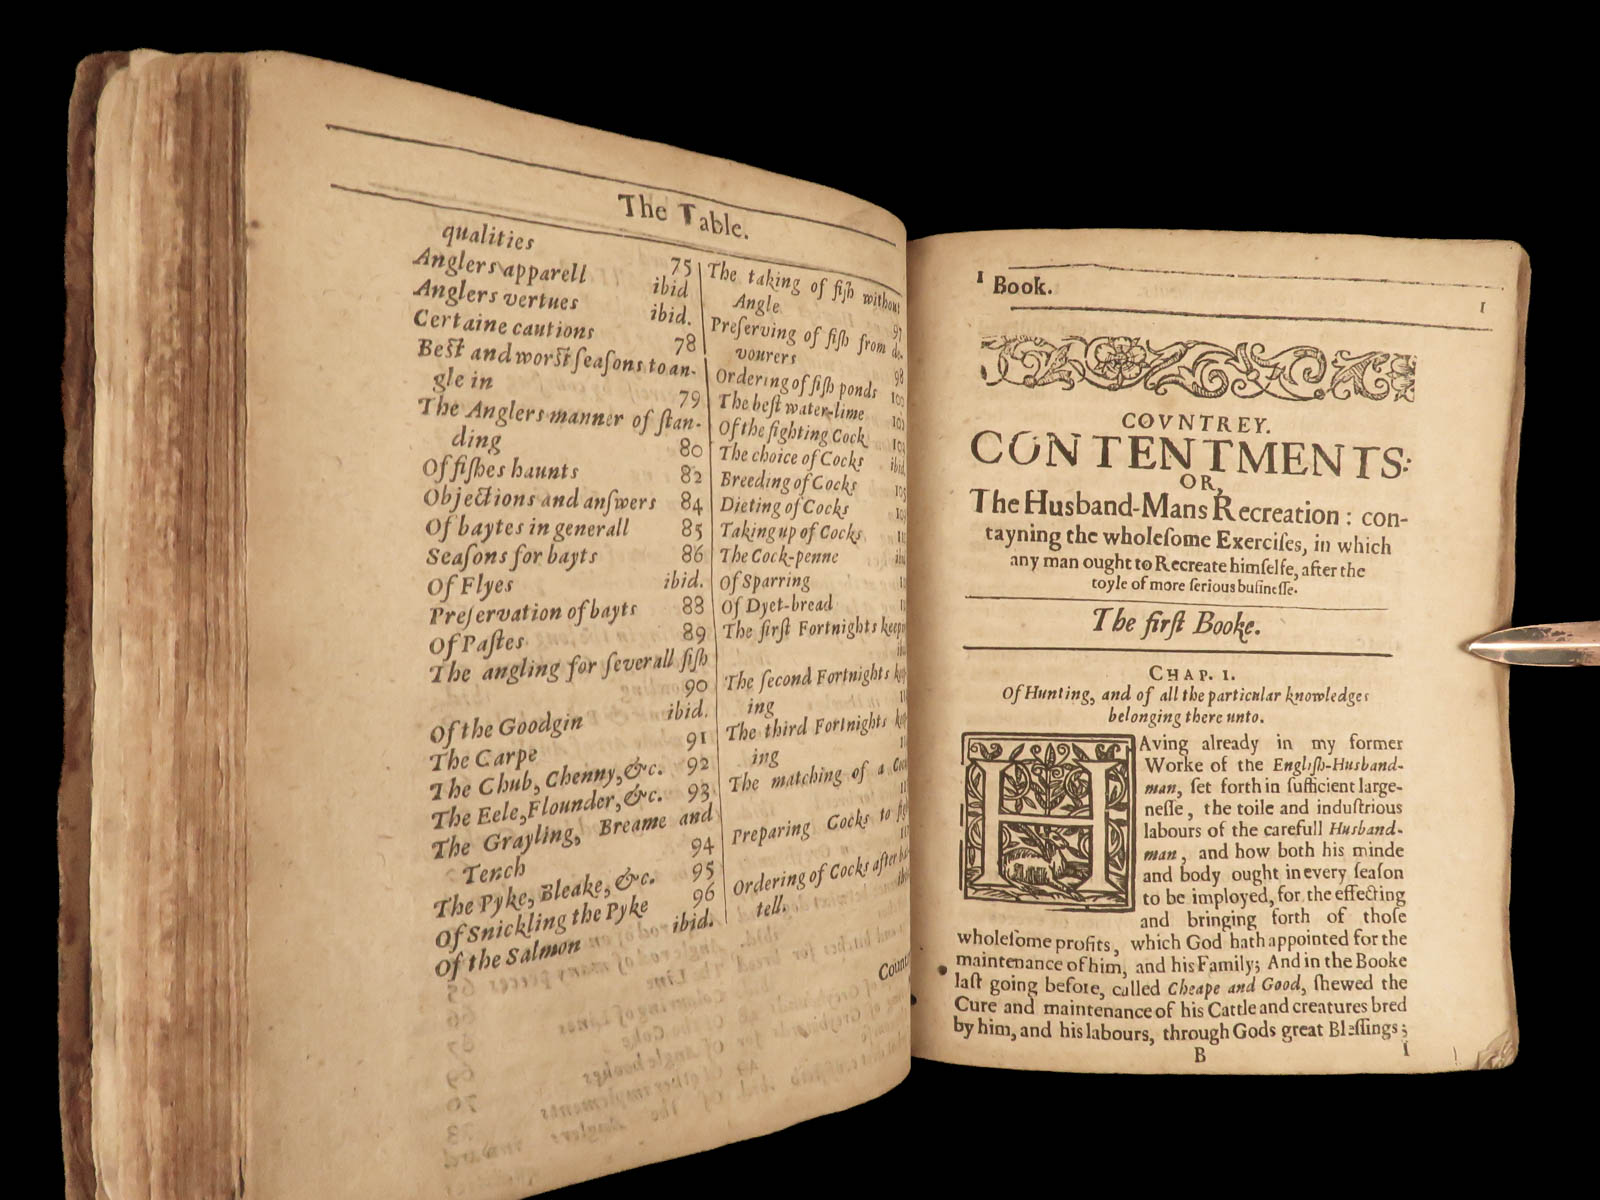 The Table.
qualities 75
Anglers apparell ibid
Anglers vertues ibid.
Certaine cautions 78
Best and worst ſeaſons to an-
gle in 79
The Anglers manner of ſtan-
ding 80
Of fiſhes haunts 82
Objections and anſwers 84
Of baytes in generall 85
Seaſons for bayts 86
Of Flyes ibid.
Preſervation of bayts 88
Of Paſtes 89
The angling for ſeverall fiſh
90
Of the Goodgin ibid.
The Carpe 91
The Chub, Chenny, &c. 92
The Eele, Flounder, &c. 93
The Grayling, Breame and
Tench 94
The Pyke, Bleake, &c. 95
Of Snickling the Pyke 96
Of the Salmon ibid.
The taking of fiſh without
Angle 97
Preſerving of fiſh from de-
vourers 98
Ordering of fiſh ponds 100
The beſt water-lime
Of the fighting Cock
The choice of Cocks ibid
Breeding of Cocks
Dieting of Cocks
Taking up of Cocks
The Cock-penne
Of Sparring
Of Dyet-bread
The firſt Fortnights
The ſecond Fortnights
ing
The third Fortnights
ing
The matching of a
Preparing Cocks to
Ordering of Cocks after
tell.
1 Book. 1
COVNTREY.
CONTENTMENTS:
OR,
The Husband-Mans Recreation: con-
tayning the wholeſome Exerciſes, in which
any man ought to Recreate himſelfe, after the
toyle of more ſerious buſineſſe.
The firſt Booke.
CHAP. 1.
Of Hunting, and of all the particular knowledges
belonging there unto.
HAving already in my former
Worke of the Engliſh-Husband-
man, ſet forth in ſufficient large-
neſſe, the toile and induſtrious
labours of the carefull Husband-
man, and how both his minde
and body ought in every ſeaſon
to be imployed, for the effecting
and bringing forth of thoſe
wholeſome profits, which God hath appointed for the
maintenance of him, and his Family; And in the Booke
laſt going before, called Cheape and Good, ſhewed the
Cure and maintenance of his Cattle and creatures bred
by him, and his labours, through Gods great Bleſſings;
B 1